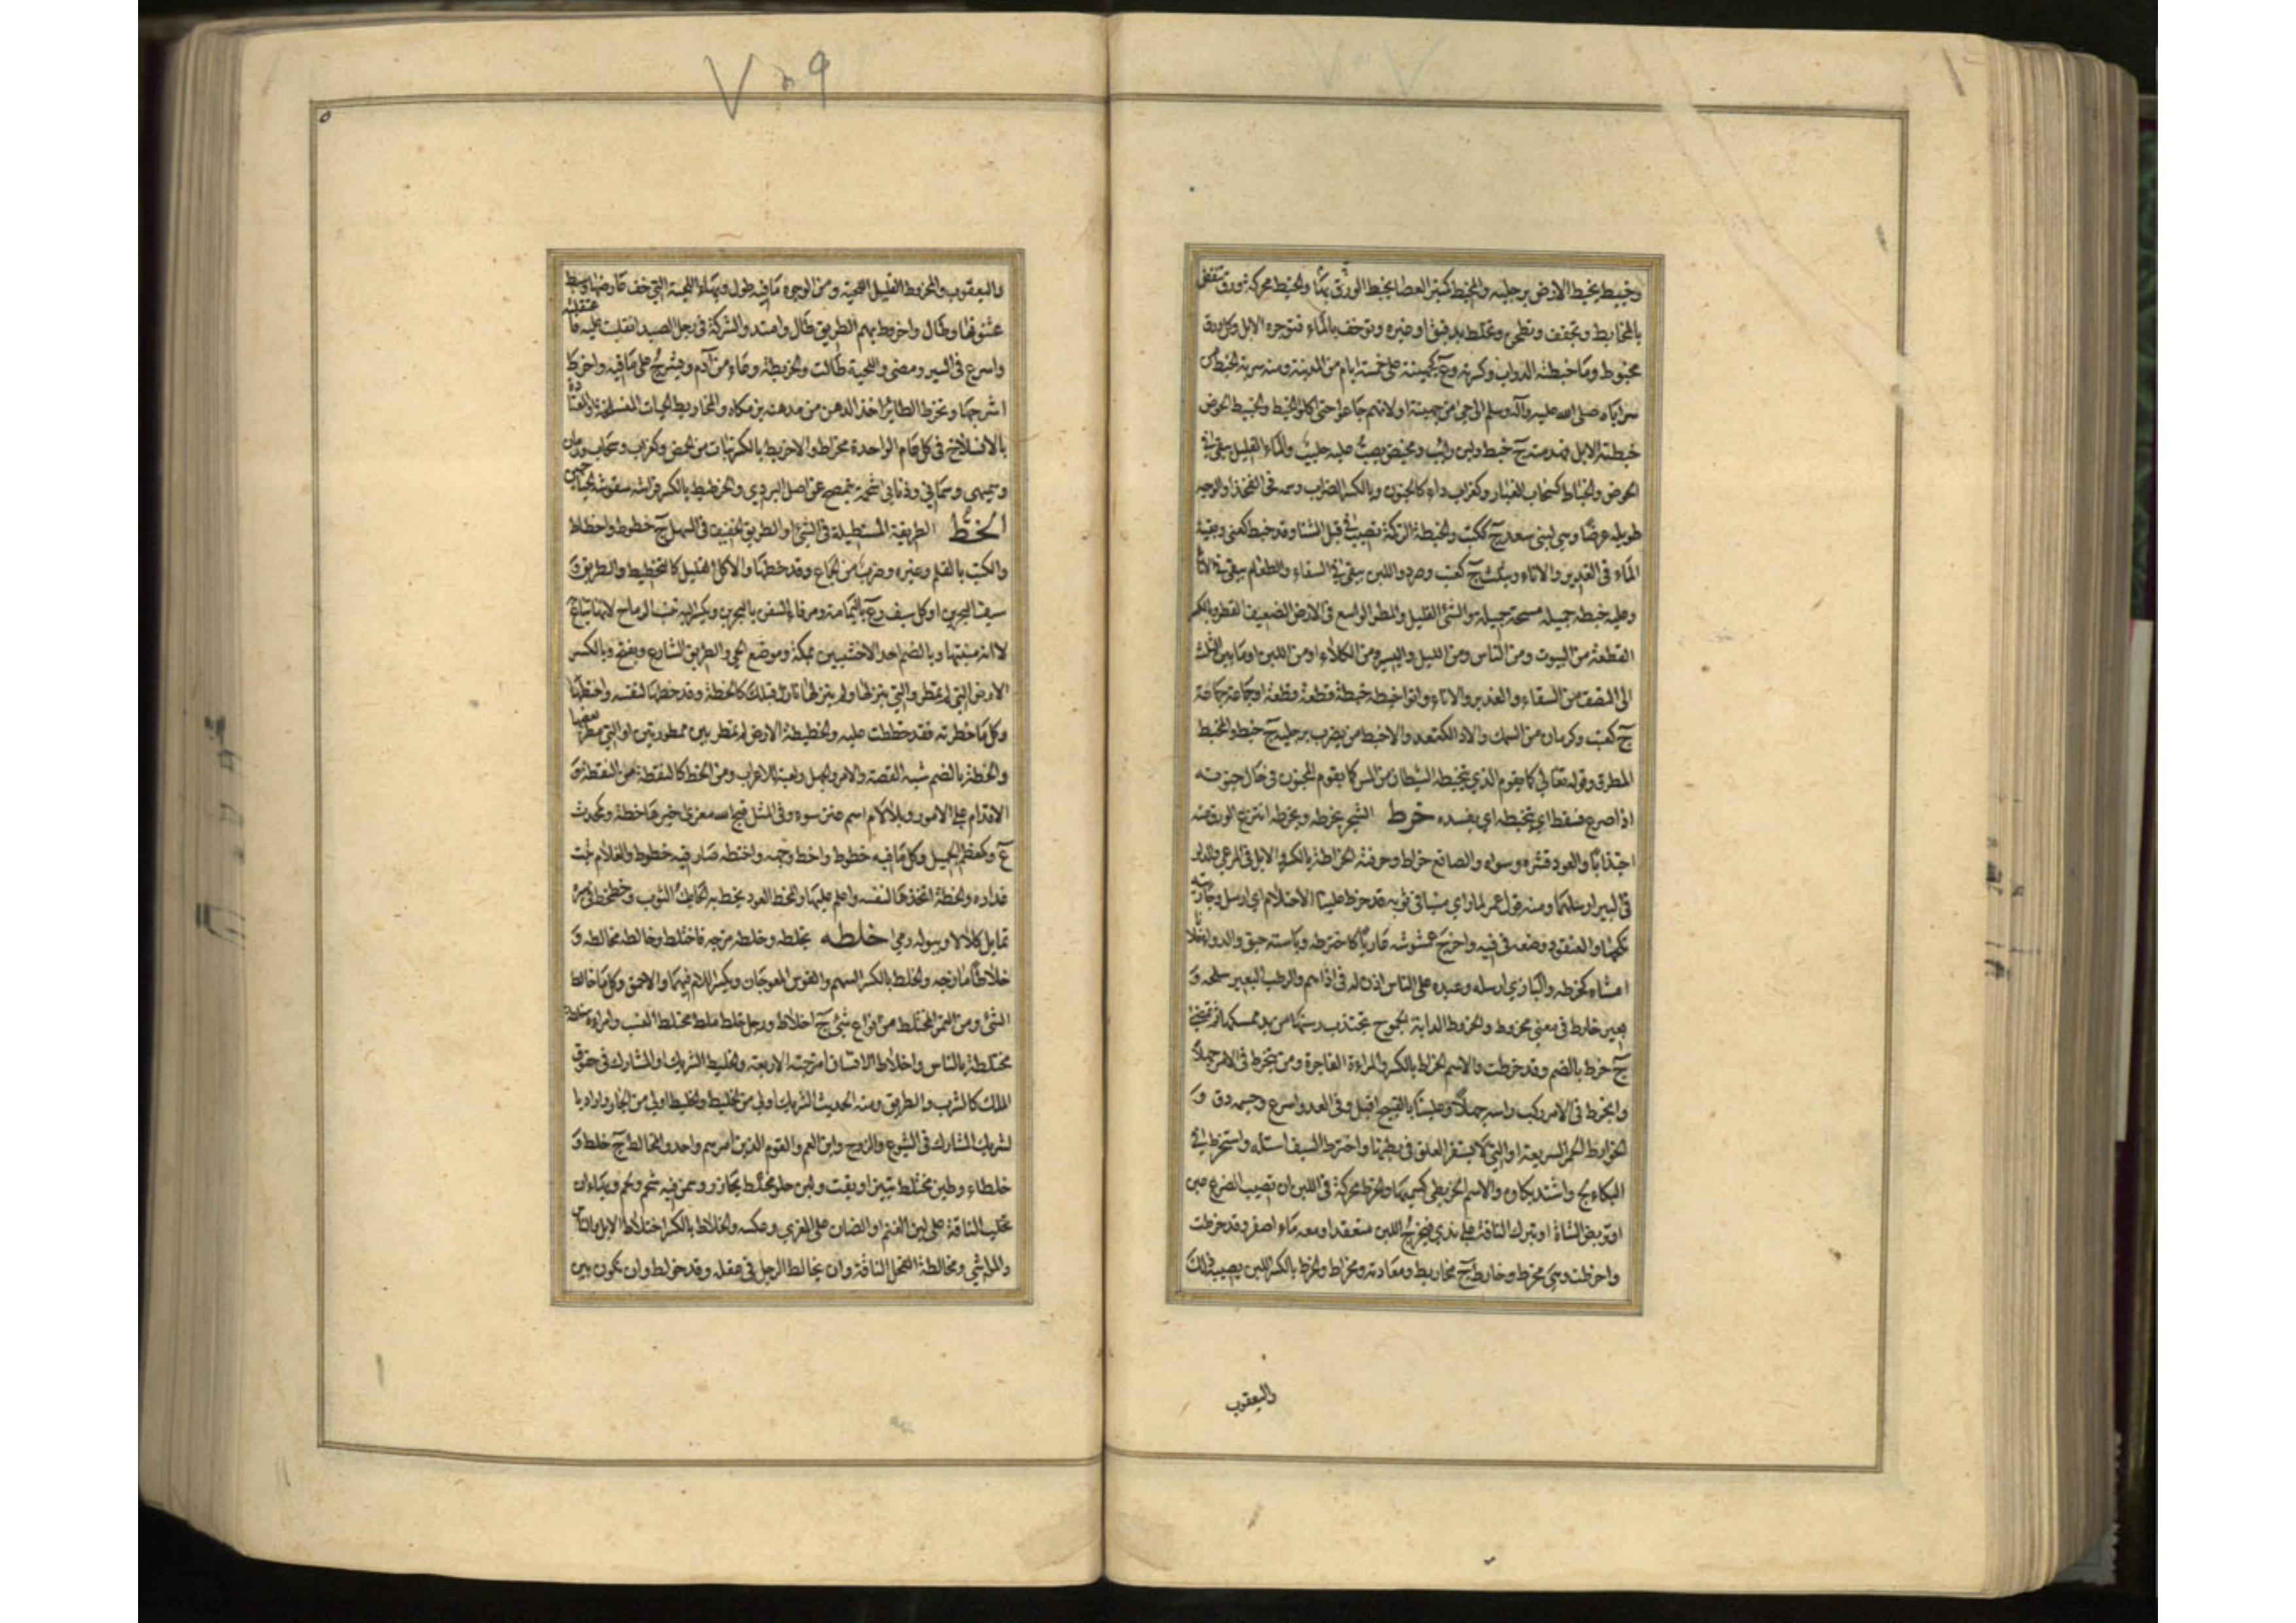 وخبيط يخبط الارض برجليه والمخبط كمنبر العصا يخبط الورق بها والخبط محركة ورق ينفض
بالمخابط ويجفف ويطحن ويخلط بدقيق او غيره ويوخف بالماء فتوجره الابل وكل ورق
مخبوط وما خبطته الدواب وكسرته وع لجهينة على خمسة ايام من المدينة ومنه سرية الخبط من
سراياه صلى الله عليه وآله وسلم الى حي من جهينة او لانهم جاعوا حتى اكلوا الخبط والخبيط الحوض
خبطته الابل فهدمته ج خبط ولبن رائب ومخيض يصب عليه حليب والماء القليل يبقى في
الحوض والخباط كسحاب الغبار وكغراب داء كالجنون وبالكسر الضراب وسمة في الفخذ او الوجه
طويلة عرضا وهي لبني سعد ج ككتب والخبطة الزكمة تصيب في قبل الشتاء وقد خبط كعني وبقية
الماء في الغدير والاناء ويثلث ج كعنب وصرد واللبن يبقى في السقاء والطعام يبقى في الاناء
وعليه خبطة جميلة مسحة جميلة والشئ القليل والمطر الواسع في الارض الضعيف القطر وبالكسر
القطعة من البيوت ومن الناس ومن الليل واليسير من الكلاء او من اللبن او ما بين الثلث
الى النصف من السقاء والغدير والاناء واتوا خبطة خبطة قطعة قطعة او جماعة جماعة
ج كعنب وكرمان من السمك والاد الكنعد والاخبط من يضرب برجليه ج خبط والمخبط
المطرق وقوله تعالى كما يقوم الذي يتخبطه الشيطان من المس كما يقوم المجنون في حال جنونه
اذا صرع فسقط اي يتخبطه اي يفسده خرط الشجر يخرطه ويخرطه انتزع الورق منه
اجتذابا والعود قشره وسواه والصانع خراط وحرفته الخراطة بالكسر والابل في المرعى والدلو
في البير ارسلها ومنه قول عمر لما راى منيا في ثوبه قد خرط علينا الاحتلام اي ارسل وجاريته
نكحها والعنقود وضعه في فيه واخرج عمشوشه عاريا كاخترطه وباسته حبق والدواء فلانا
امشاه كخرطه والبازي ارسله وعبده على الناس اذن له في اذاهم والرطب البعير سلحه و
بعير خارط في معنى مخروط والخروط الدابة الجموح تجتذب رسنها من يد ممسكها ثم تمضي
ج خرط بالضم وقد خرطت والاسم الخراط بالكسر والمراءة الفاجرة ومن ينخرط في الامر جهلا
وانخرط في الامر ركب راسه جهلا وعلينا بالقبيح اقبل وفي العدو اسرع وجسمه دق و
الخوارط الحمر السريعة او التي لا يستقر العلف في بطنها واخترط السيف استله واستخرط في
البكاء لج واشتد بكاوه والاسم الخريطى كسميهى والخرط محركة في اللبن ان يصيب الضرع عين
او تربض الشاة او تبرك الناقة على ندى فيخرج اللبن منعقدا ومعه ماء اصفر وقد خرطت
واخرطت وهي مخرط وخارط ج مخاريط ومعادته مخراط والخرط بالكسر اللبن يصيبه ذلك
واليعقوب
٧٠٩
واليعقوب والمخروط القليل اللحية ومن الوجوه ما فيه طول وبهاء اللحية التي خف عارضها وسبط
عثنونها وطال واخروط بهم الطريق طال وامتد والشركة في رجل الصيد انقلبت عليه فاعتقلته
واسرع في السير ومضى واللحية طالت والخريطة وعاء من آدم وغيره يشرج على ما فيه واخرط
اشرجها وتخرط الطائر اخذ الدهن من مدهنه بزمكاه والمخاريط الحيات المنسلخة والمعتادة
بالانسلاخ في كل عام الواحدة مخراط والاخريط بالكسر نبات من الحمض وكغراب وسحاب ورمان
وسميهى وسمانى وذنابى شحمة تتمصخ عن اصل البردي والخرطيط بالكسر فراشة منقوشة الجناحين
الخط الطريقة المستطيلة في الشئ او الطريق الخفيف في السهل ج خطوط واخطاط
والكتب بالقلم وغيره وضرب من الجماع وقد خطها والاكل القليل كالتخطيط والطريق و
سيف البحرين او كل سيف وع باليمامة ومرفاء السفن بالبحرين ويكسر اليه نسب الرماح لانها تباع به
لا انه منبتها وبالضم احد الاخشبين بمكة وموضع الحي والطريق الشارع ويفتح وبالكسر
الارض التي لم تمطر والتي تنزلها ولم ينزلها نازل قبلك كالخطة وقد خطها لنفسه واختطها
وكل ما حظرته فقد خططت عليه والخطيطة الارض لم تمطر بين ممطورتين او التي مطر بعضها
والخطة بالضم شبه القصة والامر والجهل ولعبة للاعراب ومن الخط كالنقطة من النقط و
الاقدام على الامور وبلا لام اسم عنز سوء وفي المثل قبح الله معزى خيرها خطة وكمحدث
ع وكمعظم الجميل وكل ما فيه خطوط واخط وجهه واختط صار فيه خطوط والغلام نبت
عذاره والخطة اتخذها لنفسه واعلم عليها والمخط العود يخط به الحائك الثوب وخطخط في سيره
تمايل كلالا وببوله رمى خلطه يخلطه وخلطه مزجه فاختلط وخالطه مخالطة و
خلاطا مازجه والخلط بالكسر السهم والقوس المعوجان ويكسر اللام فيهما والاحمق وكل ما خالط
الشئ ومن التمر المختلط من انواع شتى ج اخلاط ورجل خلط ملط مختلط النسب وامراءة خلطة
مختلطة بالناس واخلاط الانسان امزجته الاربعة والخليط الشريك والمشارك في حقوق
الملك كالشرب والطريق ومنه الحديث الشريك اولى من الخليط والخليط اولى من الجار واراد با
لشريك المشارك في الشيوع والزوج وابن العم والقوم الذين امرهم واحد والمخالط ج خلط و
خلطاء وطين مختلط بتبن او بقت ولبن حلو مختلط بحازر وسمن فيه شحم ولحم وبهاء ان
تحلب الناقة على لبن الغنم او الضان على المعزى وعكسه والخلاط بالكسر اختلاط الابل والناس
والمواشي ومخالطة الفحل الناقة وان يخالط الرجل في عقله وقد خولط وان تكون بين